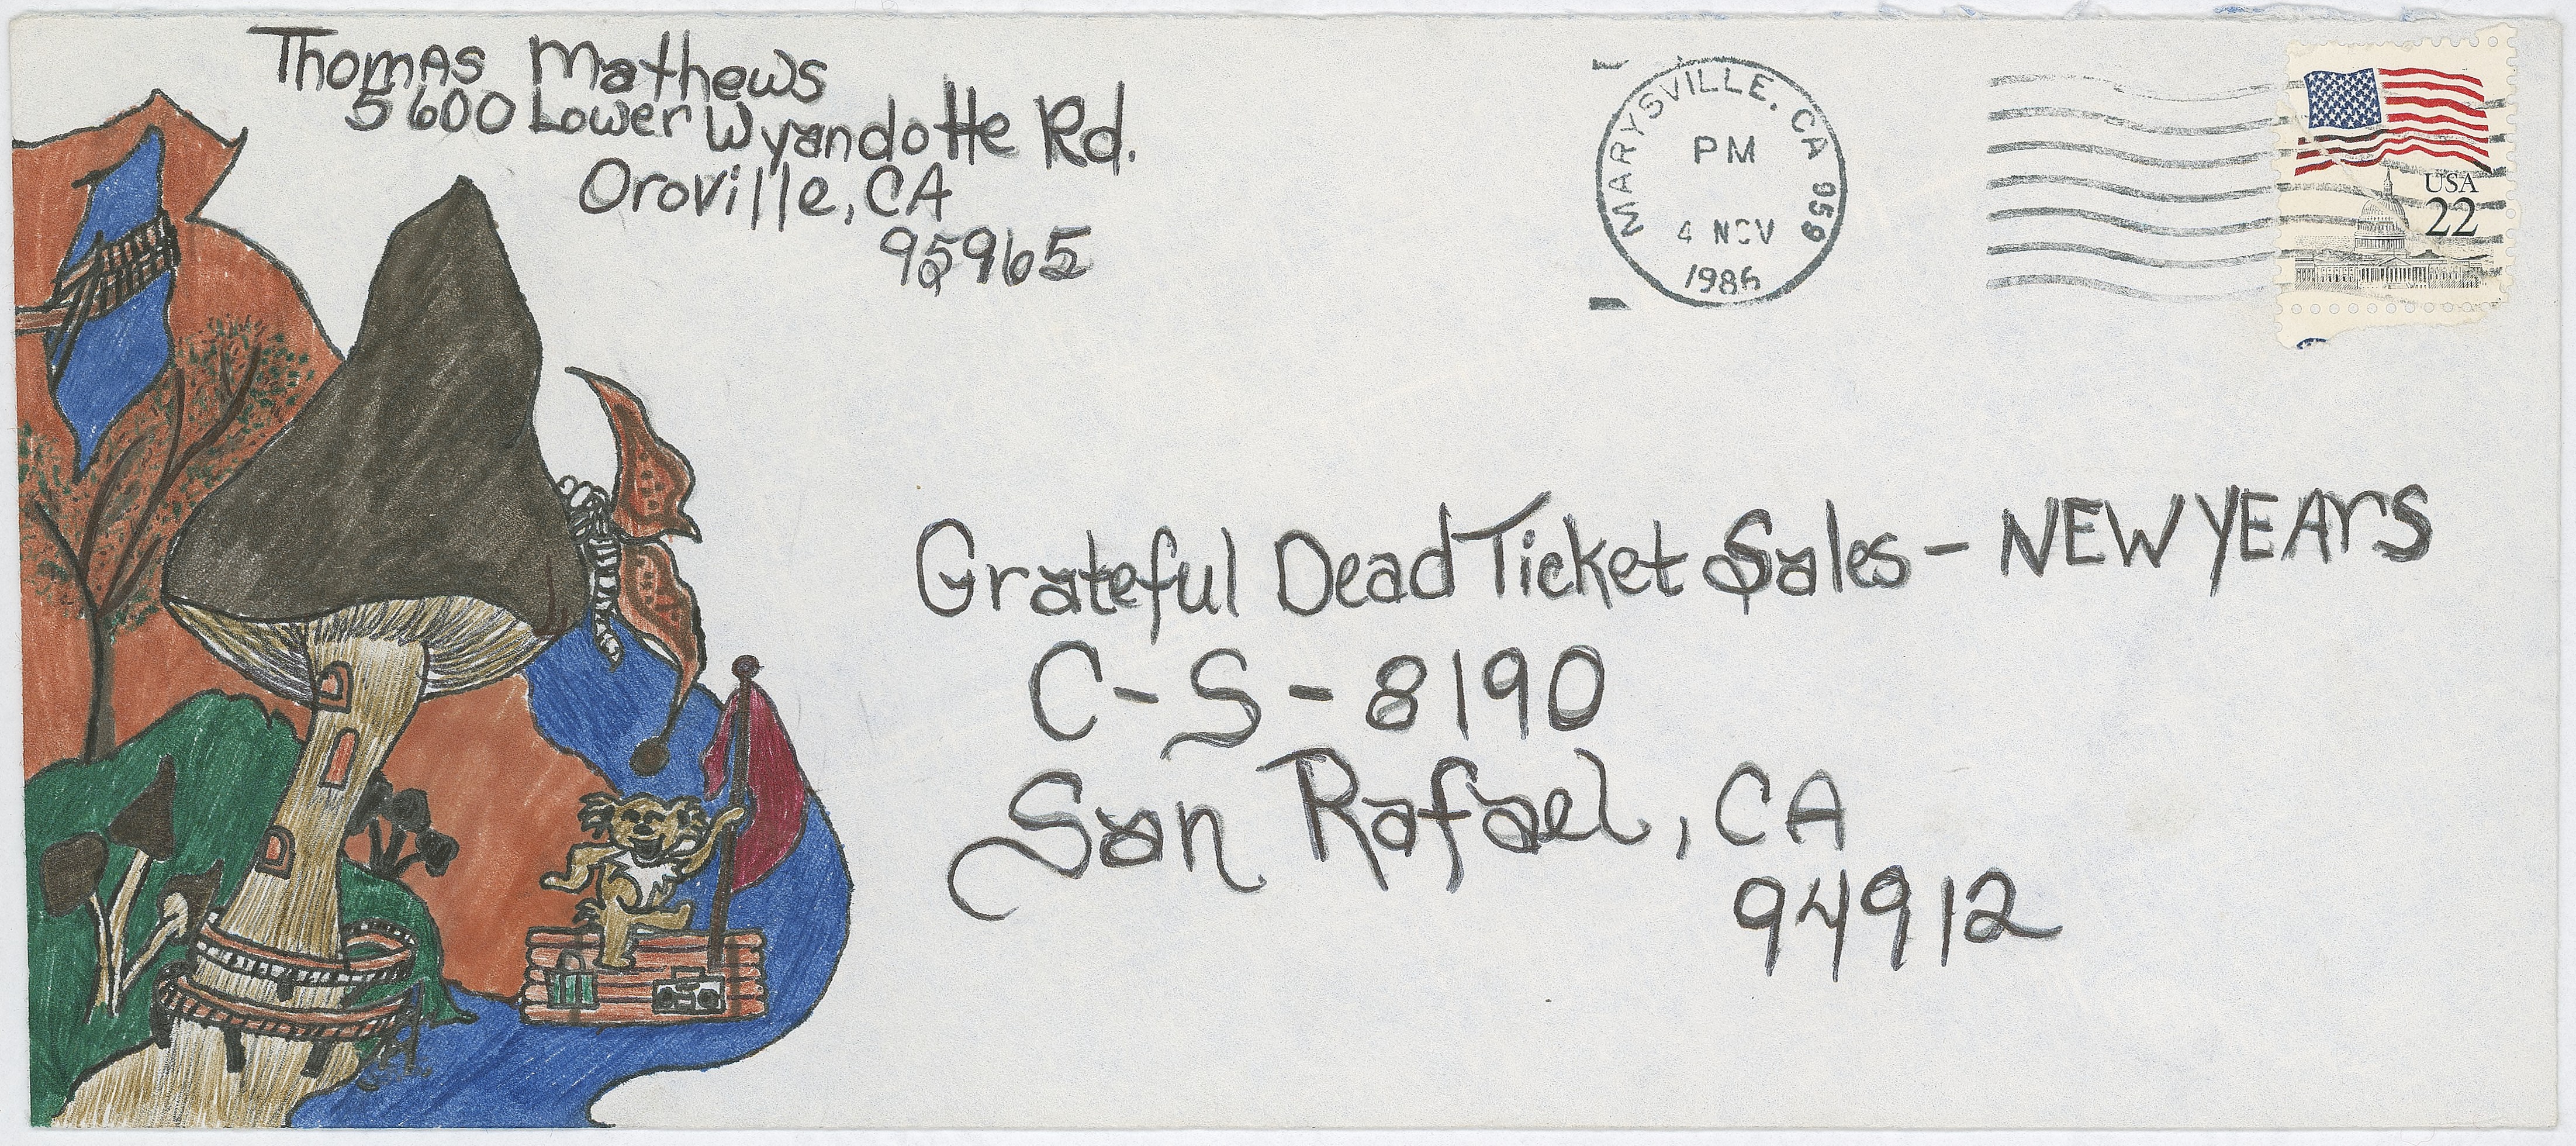 Thomas Mathews
5600 Lower Wyandotte Rd.
Oroville, CA
95965
MARYSVILLE, CA 959
PM
4 NOV
1986
USA
22
Grateful Dead Ticket Sales - NEW YEArS
C-S-8190
San Rafael, CA
94912